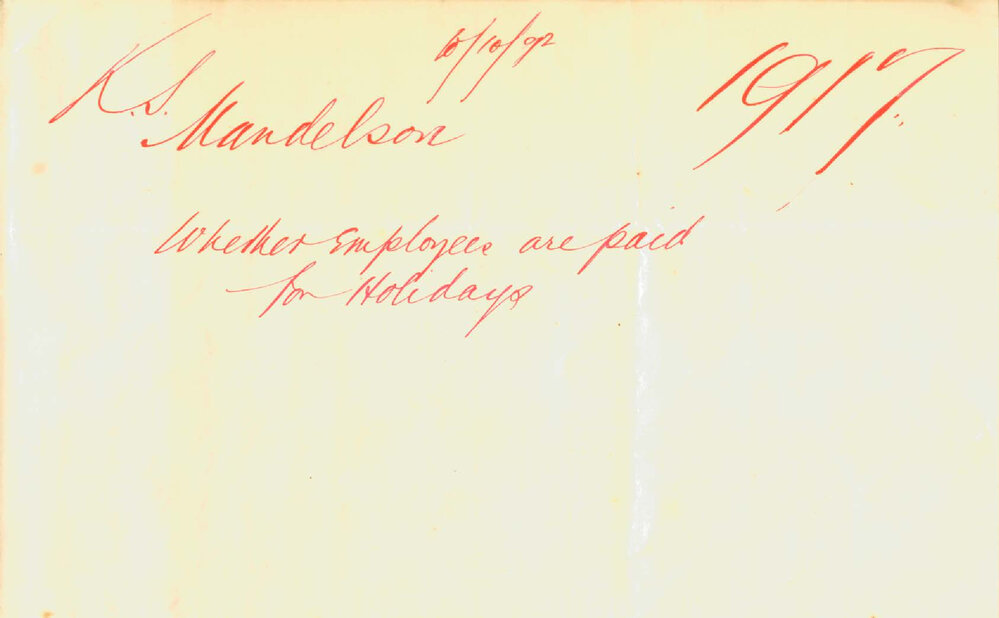 10/10/92
K. S. Mandelson
1917.
Whether Employees are paid
for Holidays